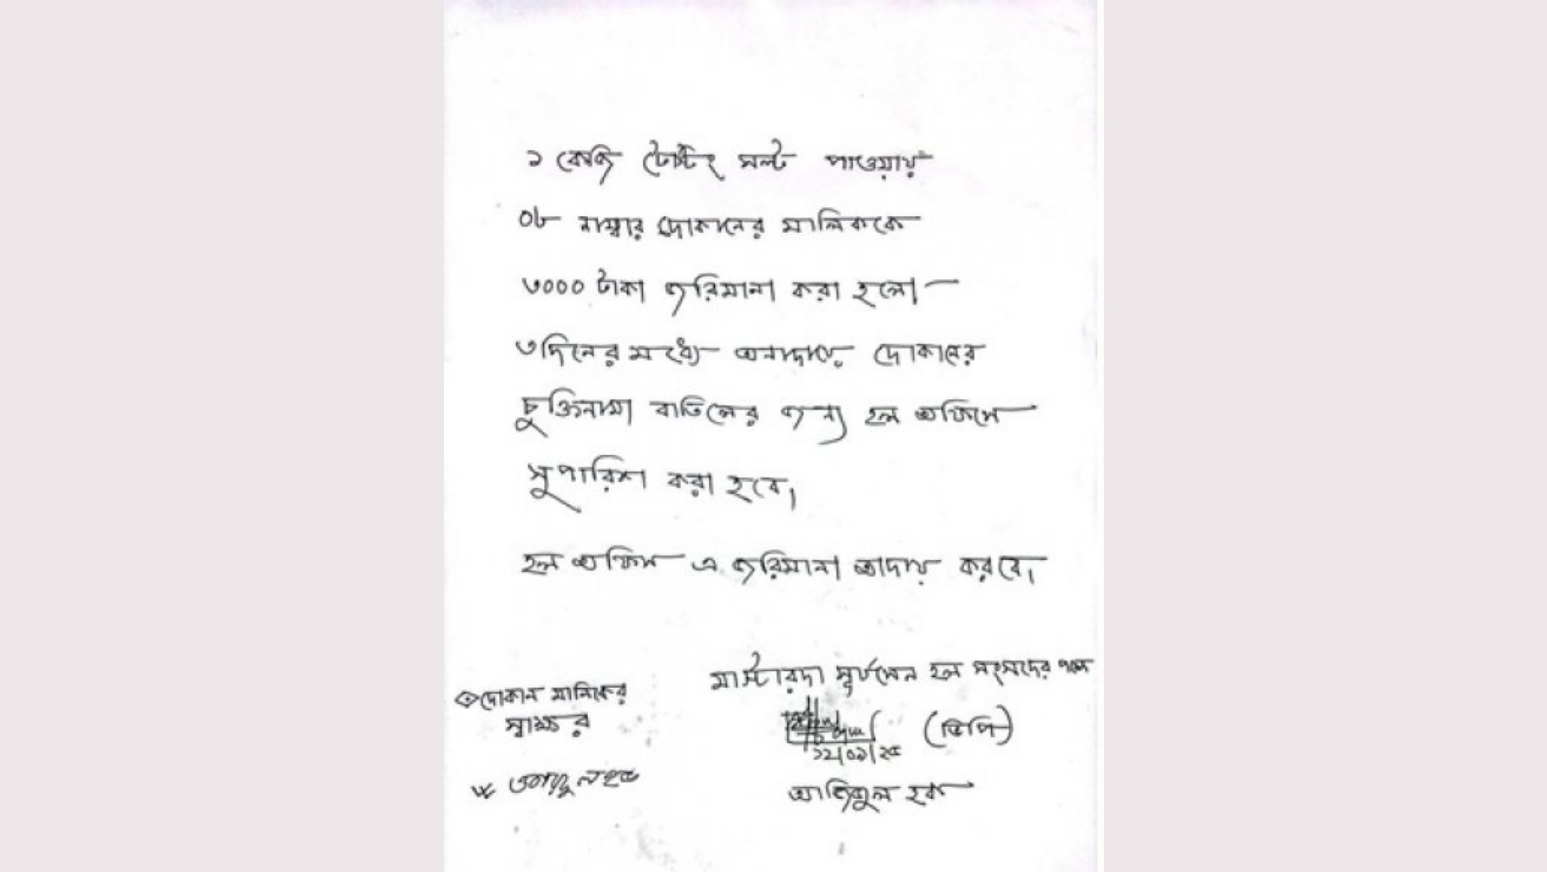 ১ কেজি টেস্টিং সল্ট পাওয়ায়
০৮ নাম্বার দোকানের মালিককে
৩০০০ টাকা জরিমানা করা হলো।
৩দিনের মধ্যে অনাদায়ে দোকানের
চুক্তিনামা বাতিলের জন্য হল অফিসে
সুপারিশ করা হবে।
হল অফিস এ জরিমানা আদায় করবে।
মাস্টারদা সূর্যসেন হল সংসদের পক্ষে
দোকান মালিকের
স্বাক্ষর
(ভিপি)
১২/০৯/২৫
আজিজুল হক